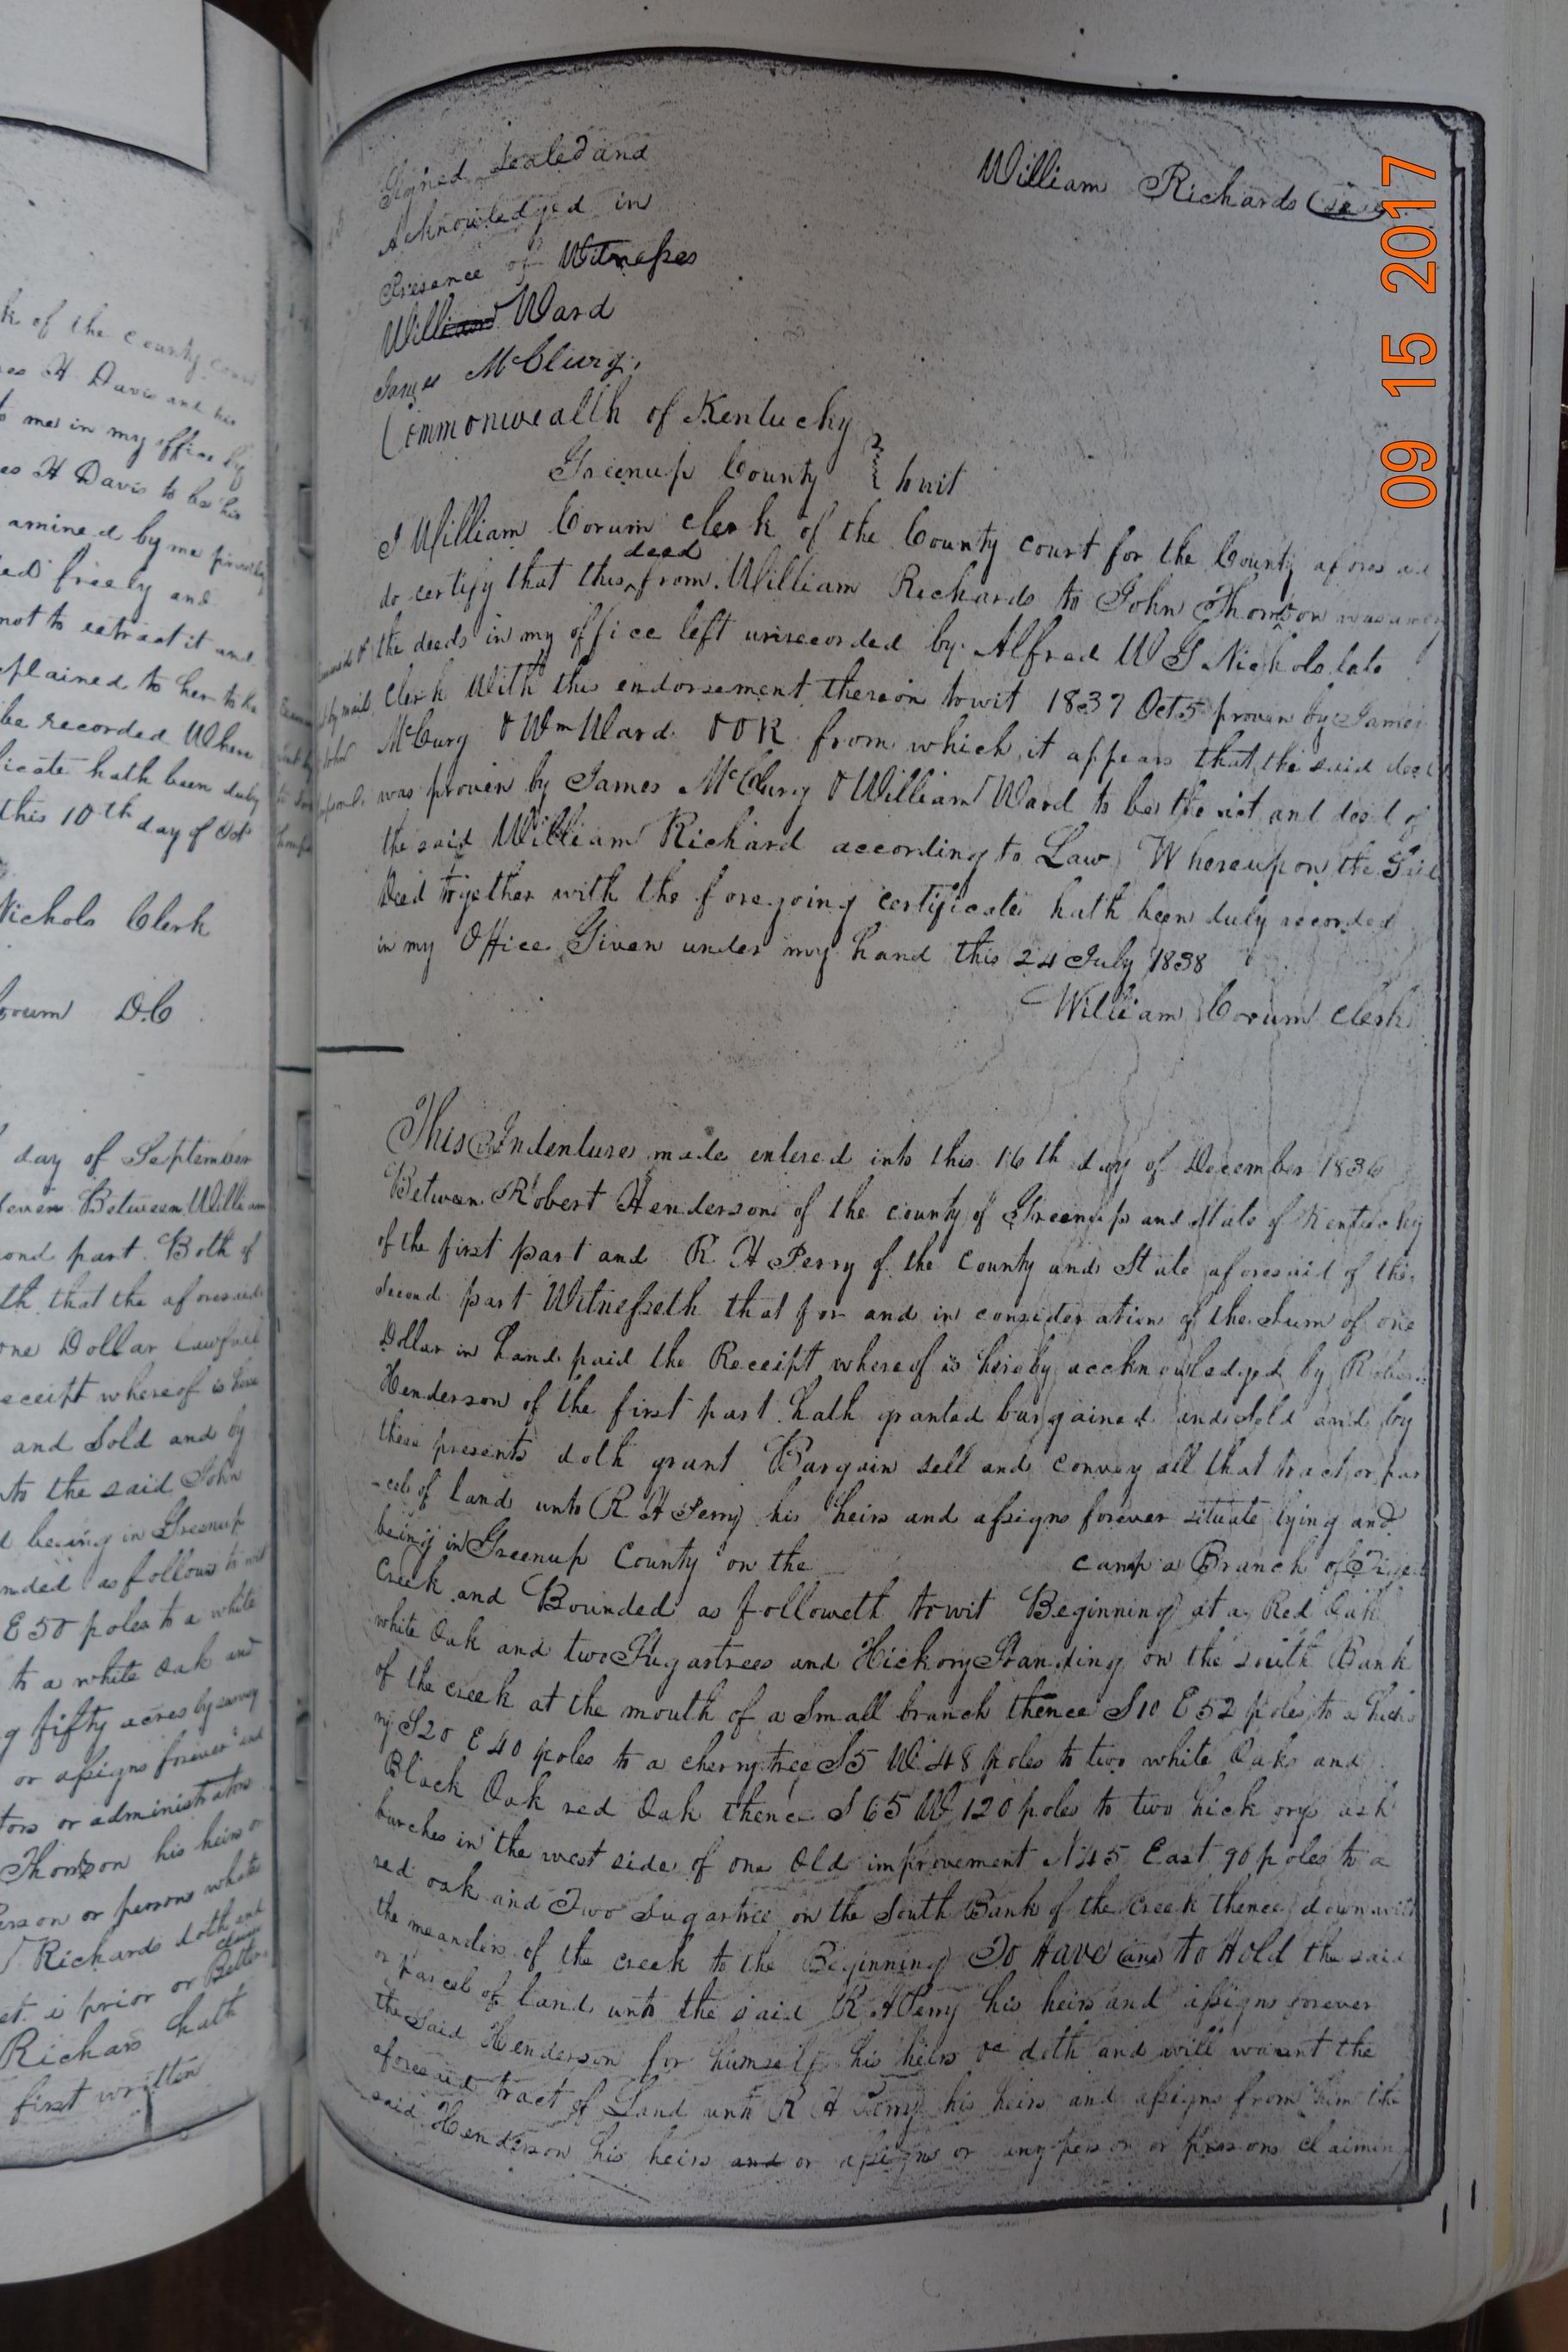 k of the County Court
es H Davis and his
to me in my office by
es H Davis to be his
amined by me privily
ed freely and
not to retract it and
plained to her to be
be recorded Where
icate hath been duly
this 10th day of Oct
Nichols Clerk
Corum D.C
day of September
Between William
ond part. Both of
th that the aforesaid
one Dollar lawful
eceipt whereof is here
and Sold and by
nto the said John
d being in Greenup
nded as follows to wit
E 50 poles to a white
to a white Oak and
g fifty acres by survey
or assigns forever and
tors or administrators
Thomson his heirs or
erson or persons whats
Richards doth and
claim
et is prior or Better
Richars hath
first written
Signed Sealed and
Acknowledged in
Presence of Witnesses
William Ward
James McClurg,
William Richards
Commonwealth of Kentucky
Greenup County } towit
I William Corum clerk of the County court for the County aforesaid
deed
do certify that this ^ from William Richards to John Thomson was among
the deeds in my office left unrecorded by Alfred W G Nichols late
Clerk With this endorsement thereon towit 1837 Oct 5 proven by James
McCurg & Wm Ward & OK from which it appears that the said deed
was proven by James McClurg & William Ward to be the act and deed of
the said William Richard according to Law Whereupon the Said
Deed together with the foregoing certificate hath been duly recorded
in my Office Given under my hand this 24 July 1838
William Corum clerk
This Indenture made entered into this 16th day of December 1836
Between Robert Henderson of the county of Greenup and State of Kentucky
of the first part and R. H Perry of the County and State aforesaid of the
second part Witnesseth that for and in consideration of the Sum of one
Dollar in hand paid the Receipt whereof is hereby accknowledged by Robert
Henderson of the first part hath granted bargained and Sold and by
these presents doth grant Bargain sell and convey all that tract or par
-cel of land unto R H Perry his heirs and assigns forever situate lying and
being in Greenup County on the camp a Branch of
Creek and Bounded as followeth towit Beginning at a Red Oak
white Oak and two Sugartrees and Hickory Standing on the south Bank
of the creek at the mouth of a Small branch thence S 10 E 52 poles to a hicko
ry S 20 E 40 poles to a cherry tree S 5 W 48 poles to two white Oaks and
Black Oak red Oak thence S 65 W 120 poles to two hickorys ash
in the west side of one Old improvement N 45 East 90 poles to a
red oak and Two Sugartree on the South Bank of the creek thence down with
the meanders of the creek to the Beginning To Have and to Hold the said
or Parcel of land unto the said R H Perry his heirs and assigns forever
the said Henderson for himself his heirs &c doth and will warent the
aforesaid tract of Land unto R H Perry his heirs and assigns from him the
said Henderson his heirs and or assigns or any person or persons claiming
09 15 2017